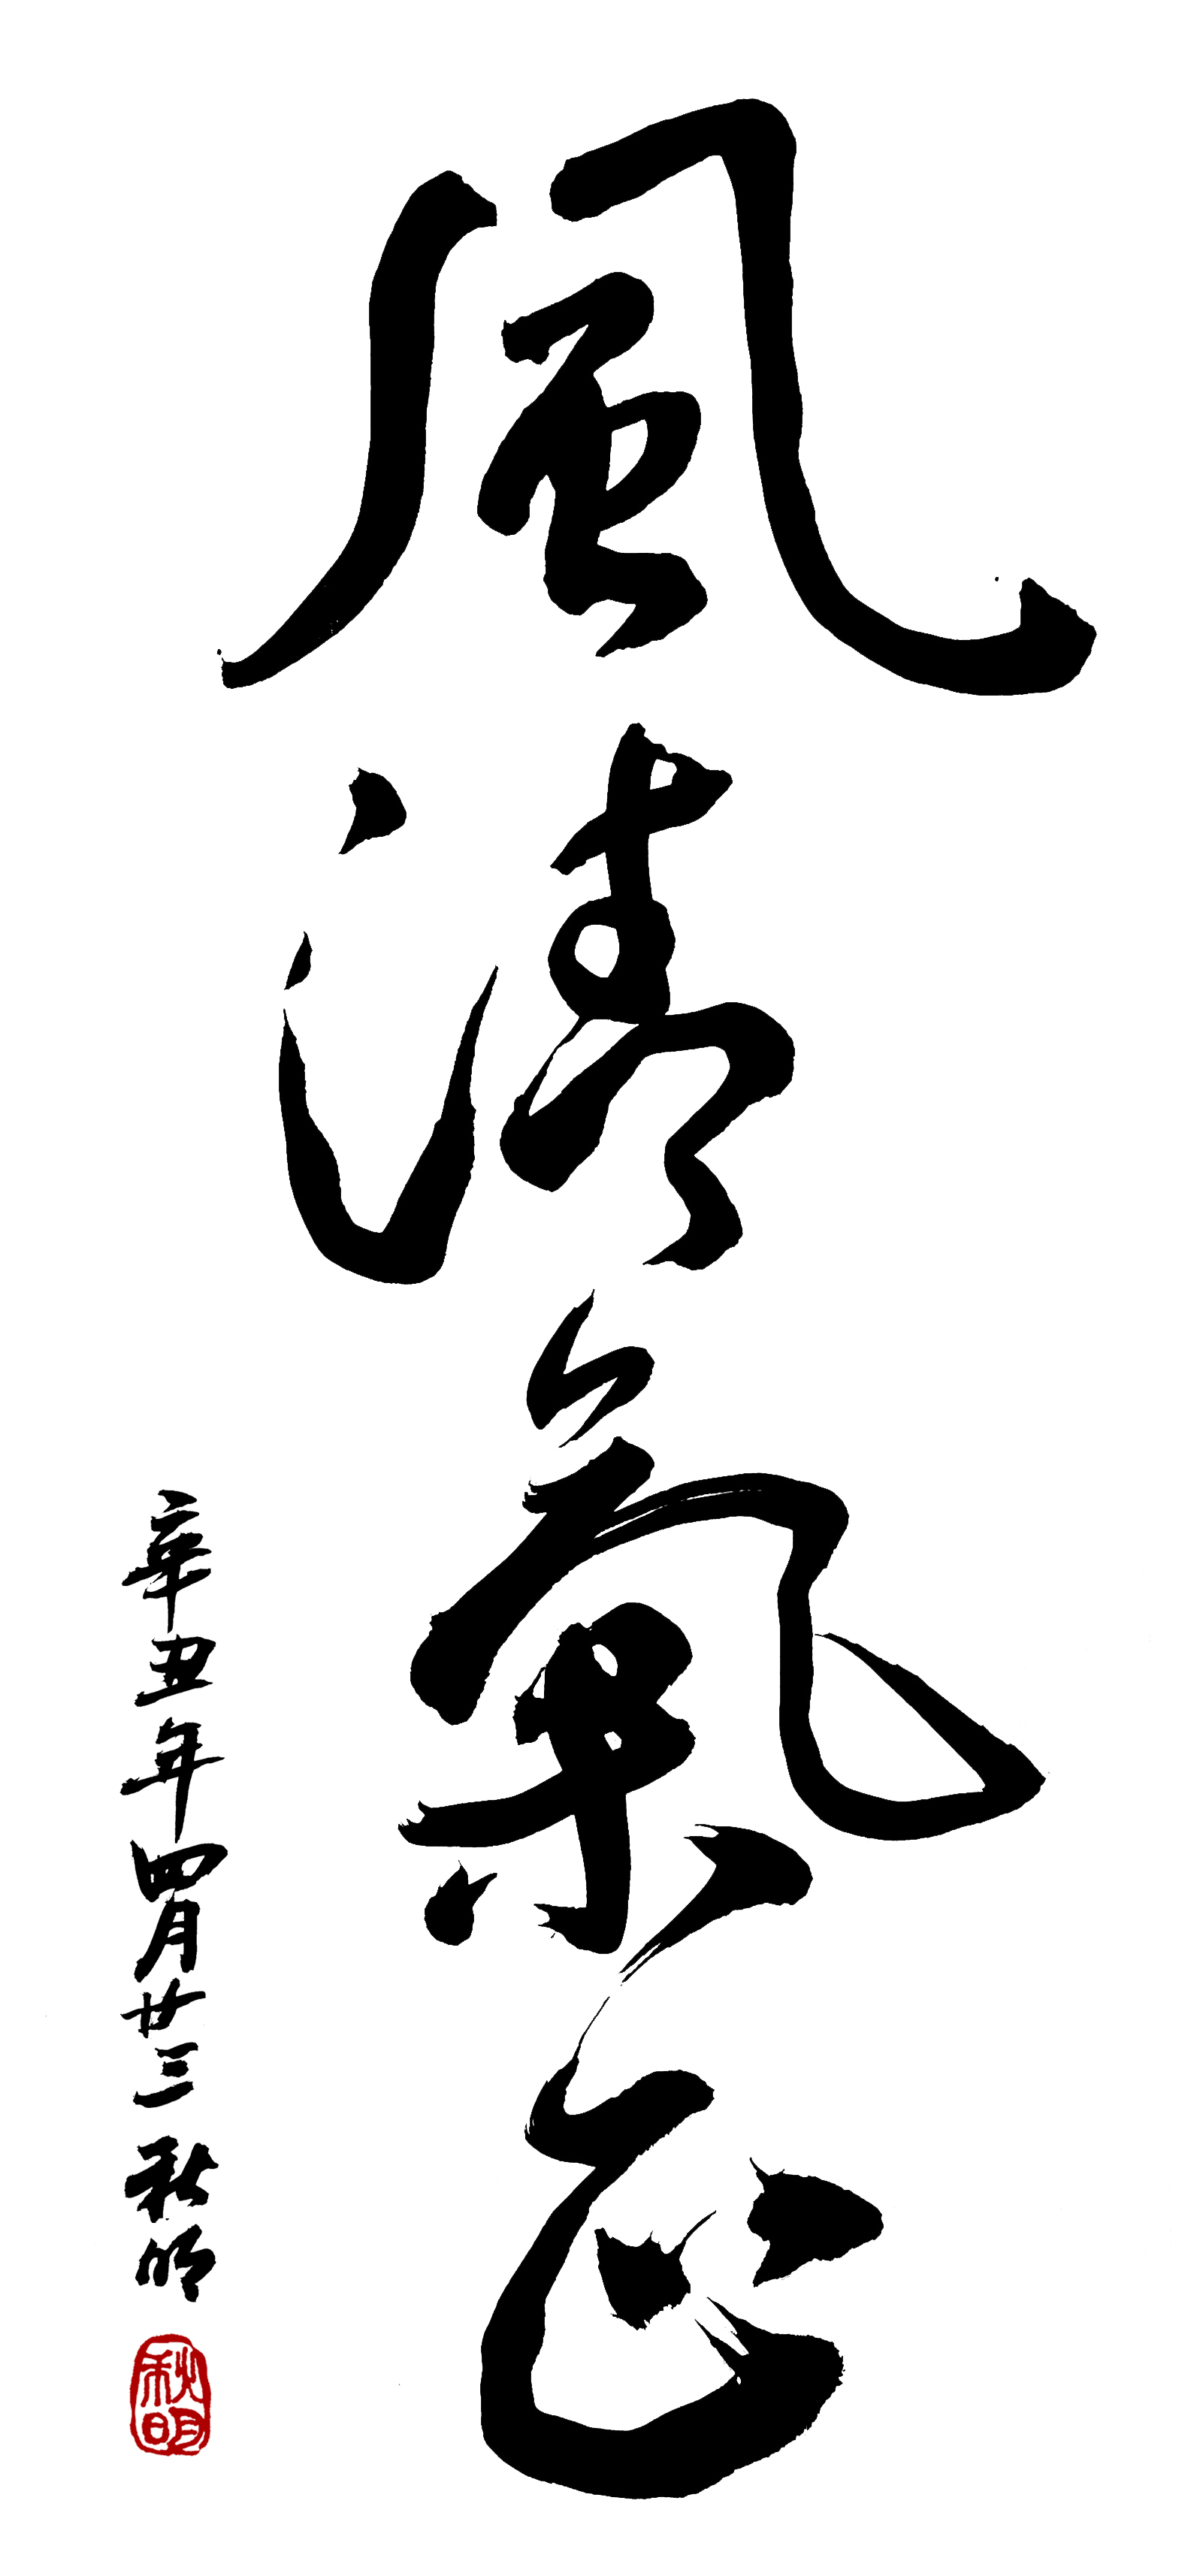 風清氣正
辛丑年四月廿三 秋明
秋明